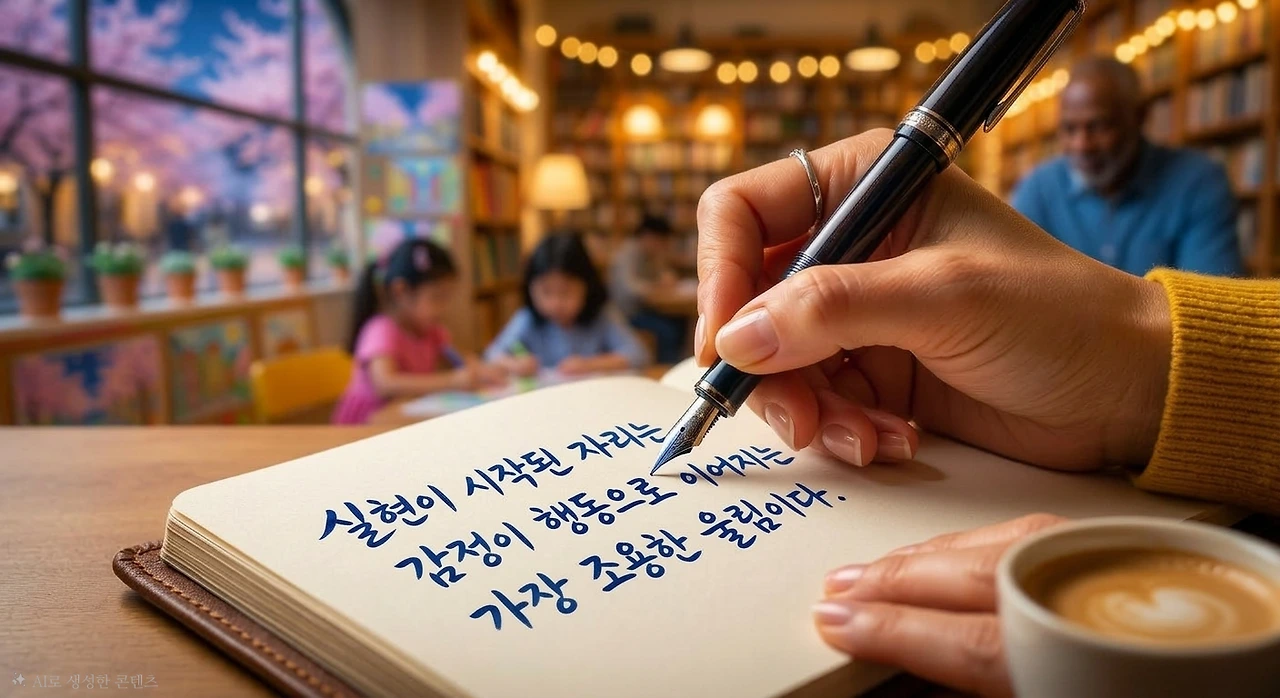 실현이 시작된 자리는
감정이 행동으로 이어지는
가장 조용한 울림이다.
AI로 생성한 콘텐츠